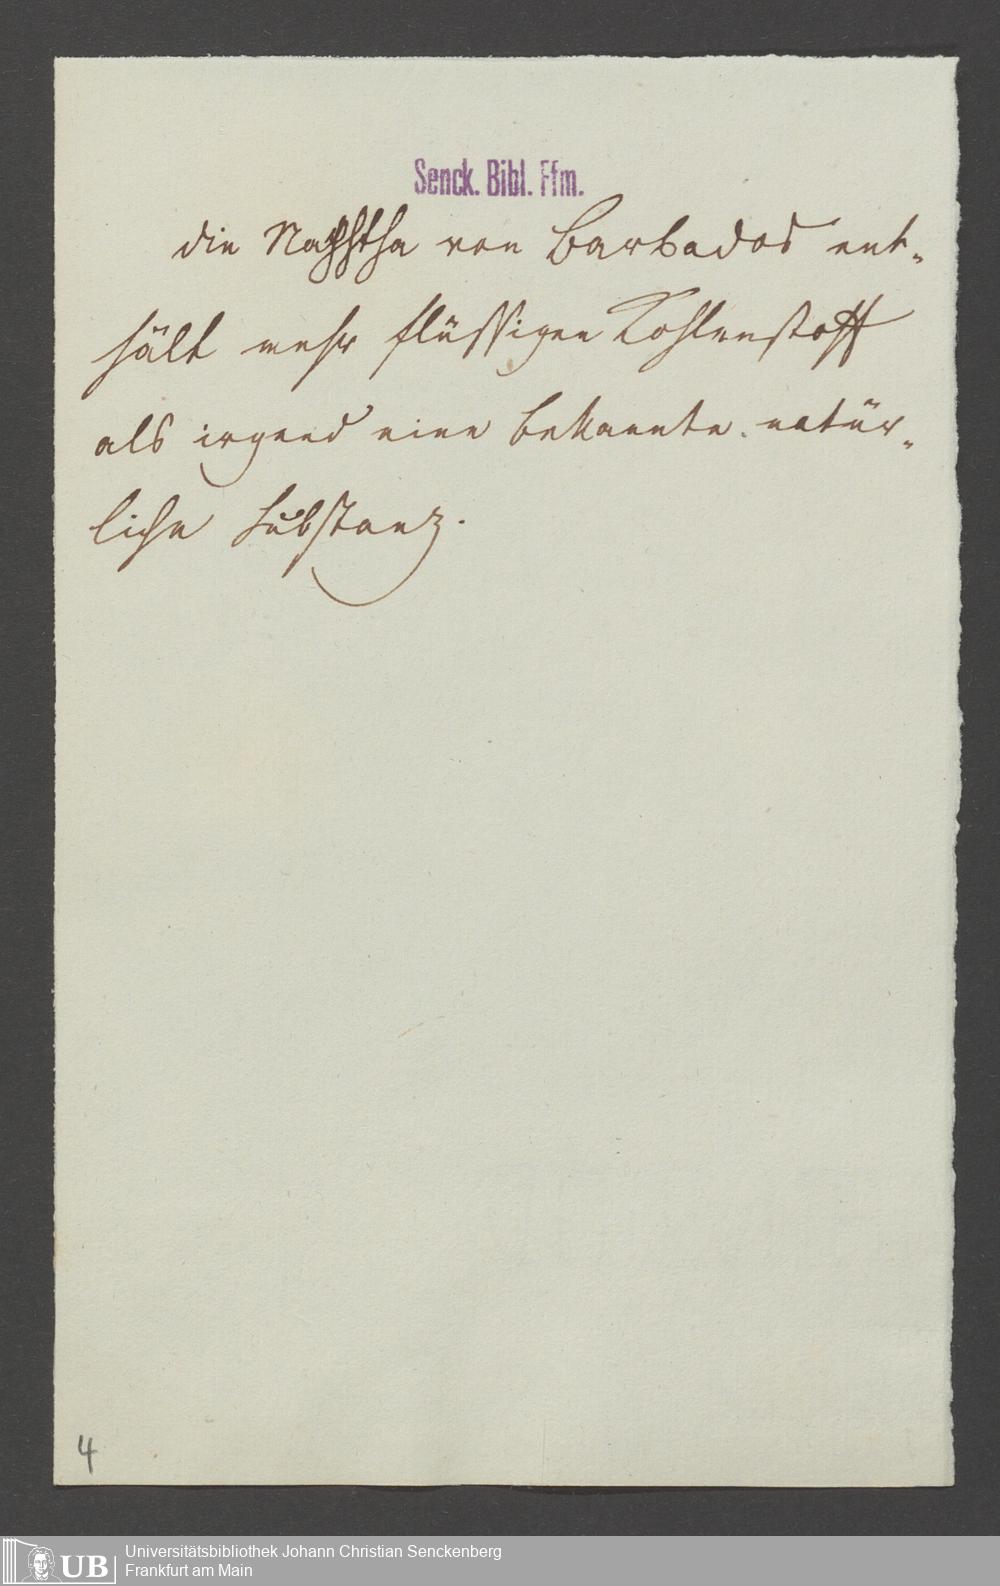 Senck. Bibl. Ffm.
die Naphtha von Barbados ent-
hält mehr flüssigen Kohlenstoff
als irgend eine bekannte natür-
liche Substanz.
4
UB
Universitätsbibliothek Johann Christian Senckenberg
Frankfurt am Main